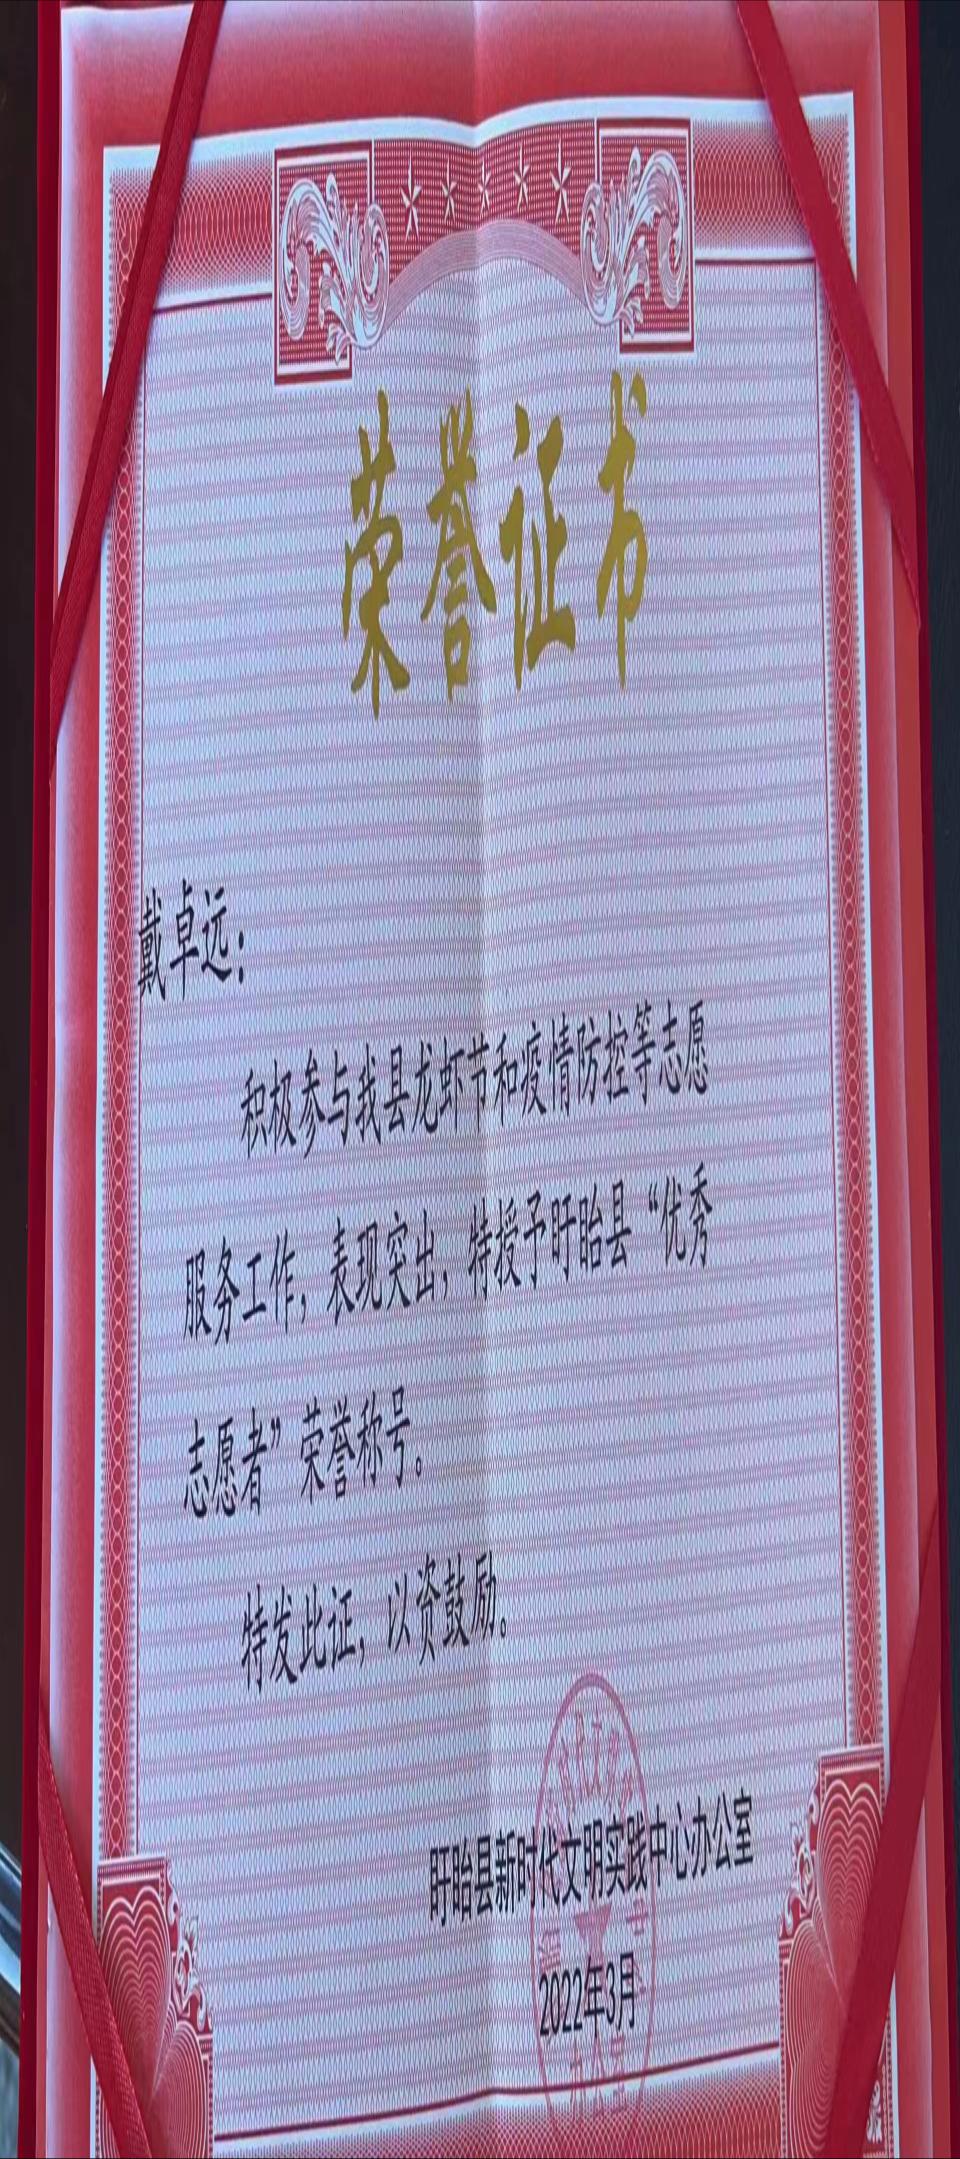 荣誉证书
戴卓远：
积极参与我县龙虾节和疫情防控等志愿
服务工作，表现突出，特授予盱眙县“优秀
志愿者”荣誉称号。
特发此证，以资鼓励。
盱眙县新时代文明实践中心办公室
2022年3月